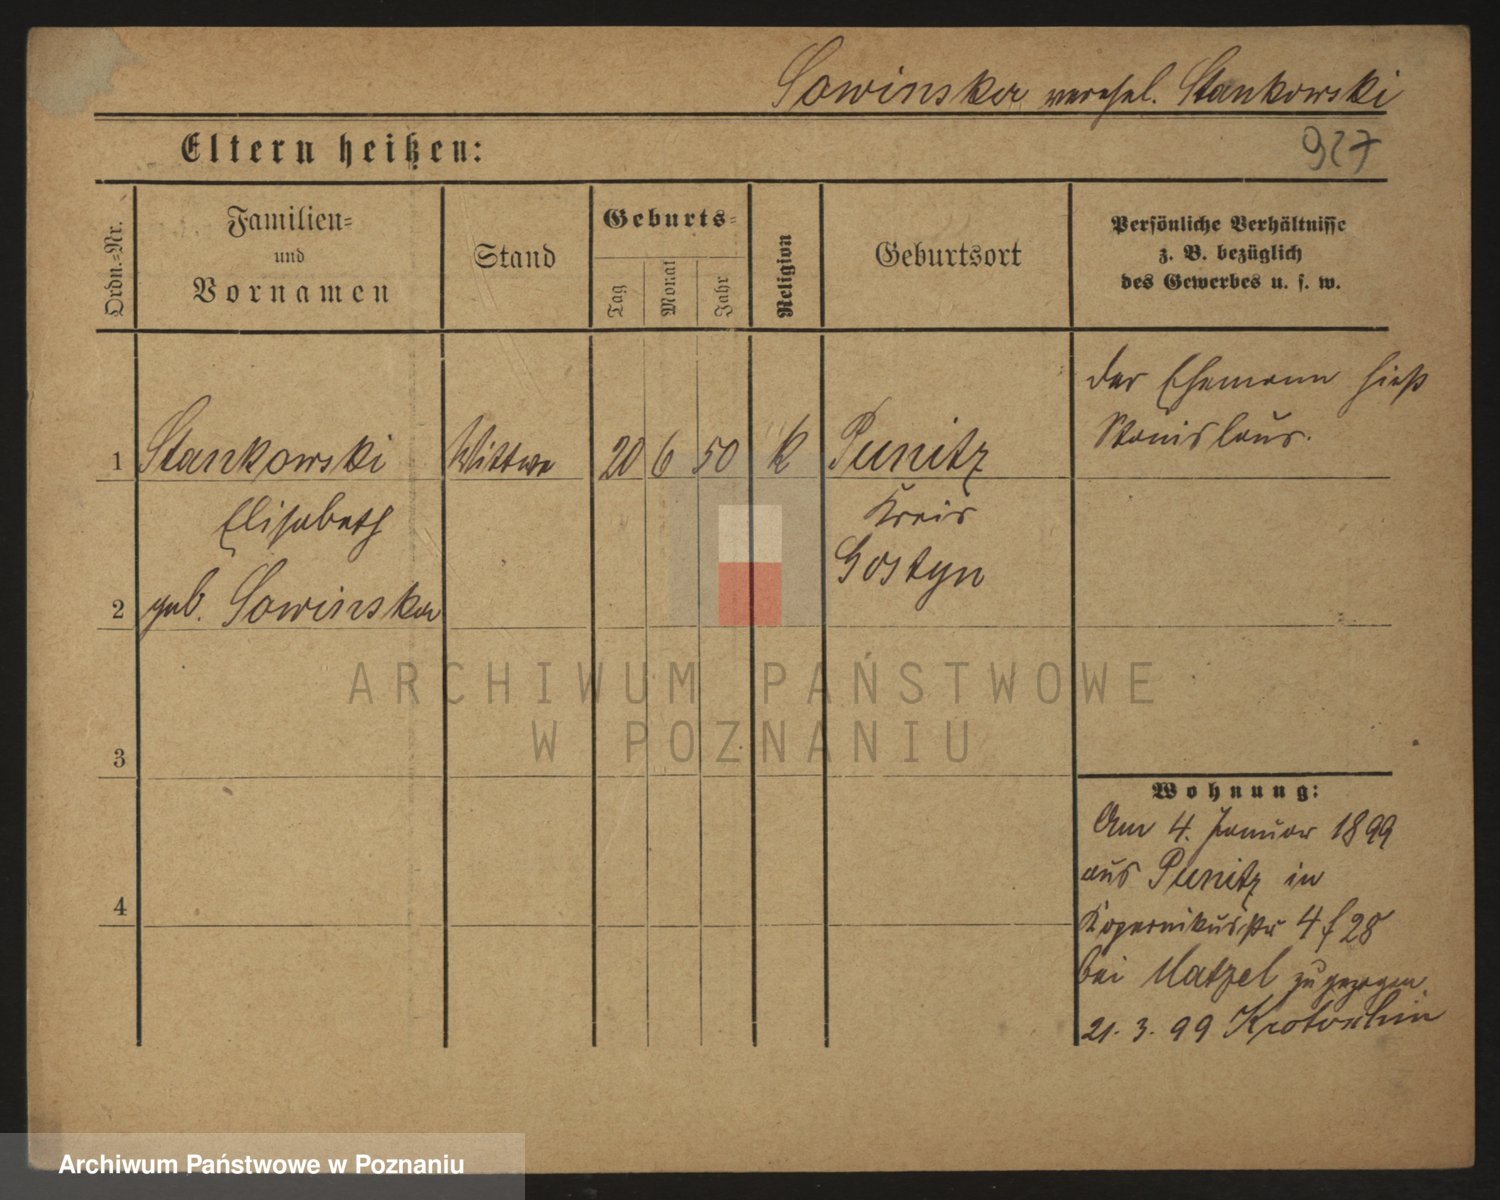 Sowinska verehel. Stankowski
Eltern heißen:
927
Ordn.=Nr.
Familien=
und
Vornamen
Stand
Geburts=
Tag
Monat
Jahr
Religion
Geburtsort
Persönliche Verhältnisse
z. B. bezüglich
des Gewerbes u. s. w.
der Ehemann hieß
Stanislaus.
1 Stankowski Wittwe 20 6 50 K Punitz
Elisabeth Kreis
Gostyn
2 geb. Sowinska
ARCHIWUM PAŃSTWOWE
W POZNANIU
3
Wohnung:
Am 4. Januar 1899
aus Punitz in
4
Kopernikusstr 4 f 28
bei Matzel zugezogen
21. 3. 99 Krotoschin
Archiwum Państwowe w Poznaniu